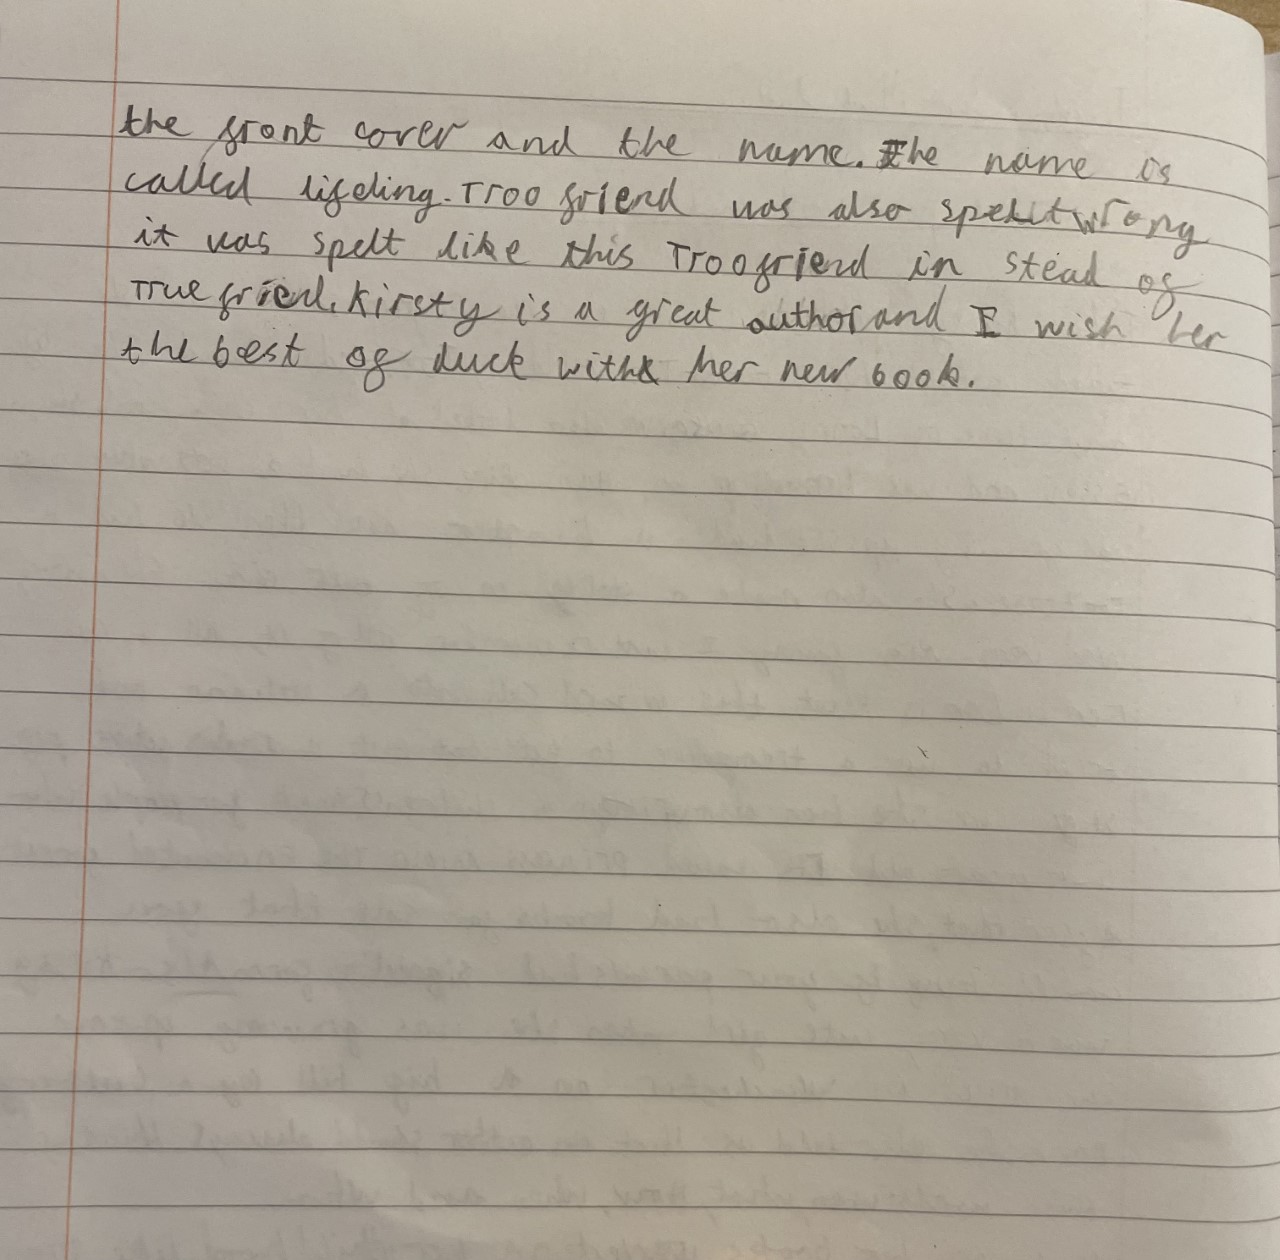 the front cover and the name. The name is
called lifeling. Troo friend was also spelt wrong
it was spelt like this Troofriend in stead of
True friend. Kirsty is a great author and I wish her
the best of luck with her new book.